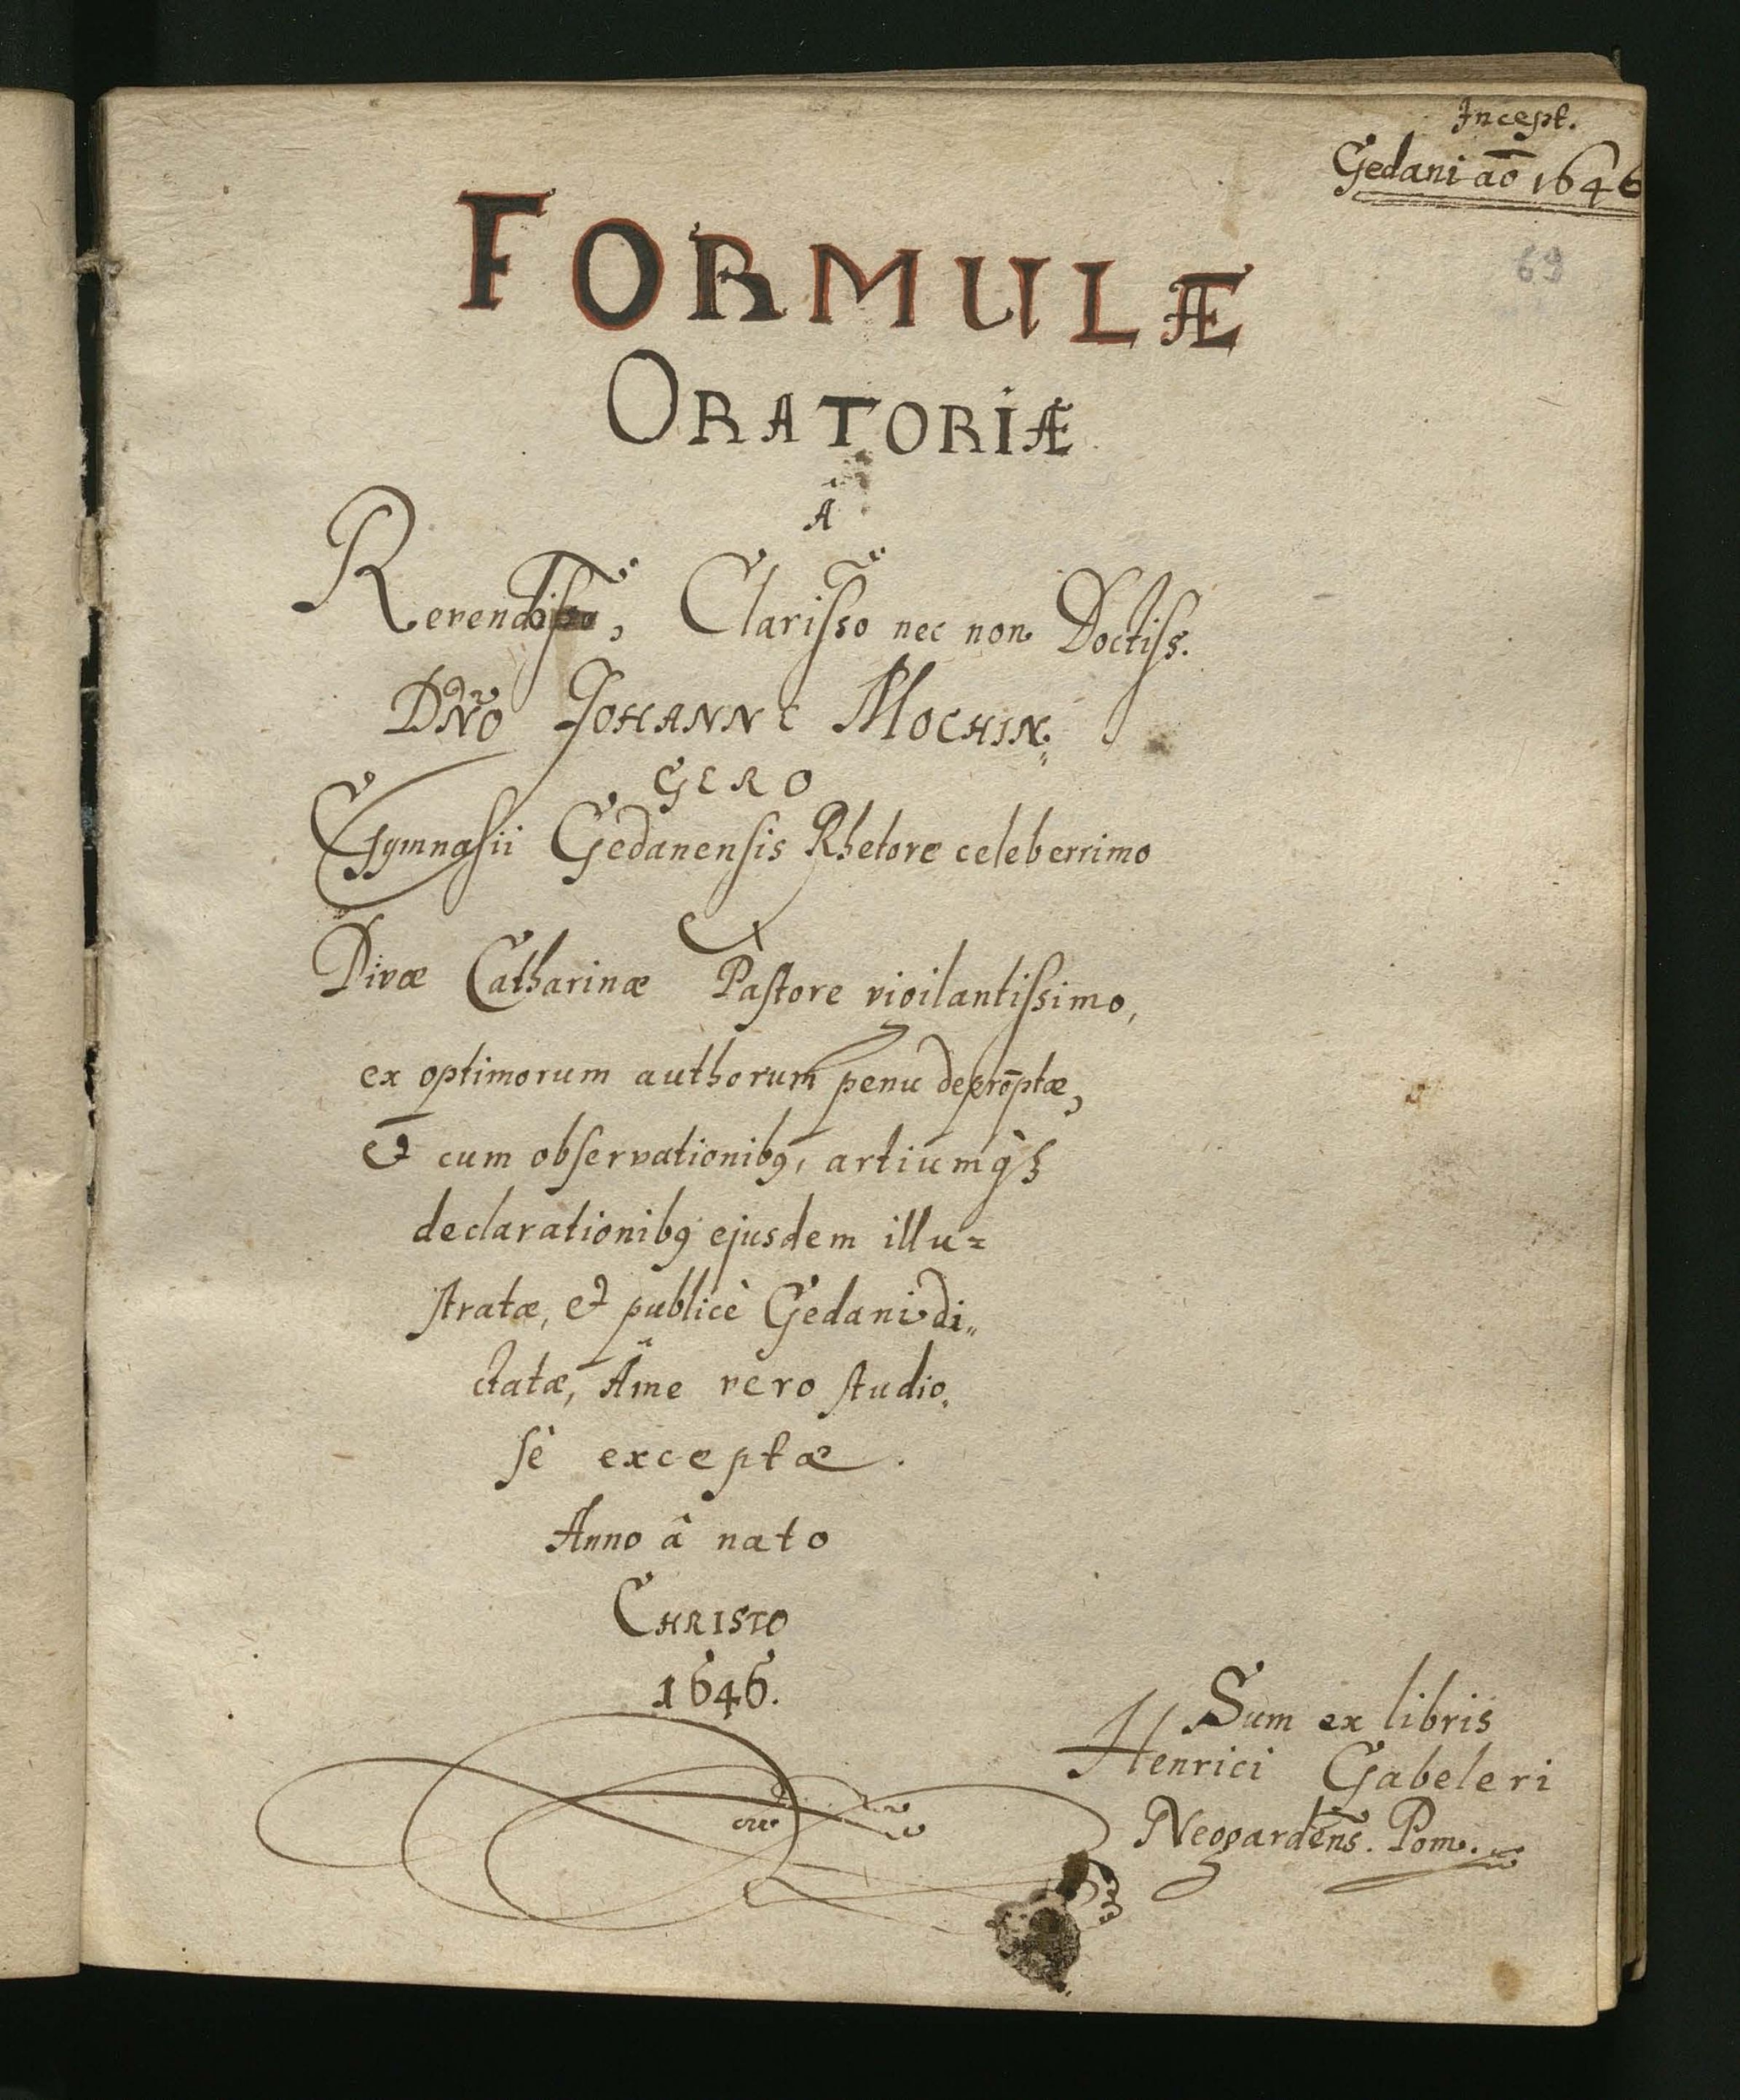 Incept.
Gedani aō 1646
69
FORMULÆ
ORATORIÆ
Â
Reverendisso, Clarisso nec non Doctiss.
DNO JOHANNE MOCHIN„
GERO
Gymnasii Gedanensis Rhetore celeberrimo
Divæ Catharinæ Pastore vigilantissimo,
ex optimorum authorum penu deprōptæ,
& cum observationibꝰ, artiumq́ꝫ
declarationibꝰ ejusdem illu=
stratæ, & publicè Gedani di„
ctatæ, Â me vero studio„
sè exceptæ.
Anno â nato
CHRISTO
1646.
Sum ex libris
Henrici Gabeleri
Neogardēns. Pom.